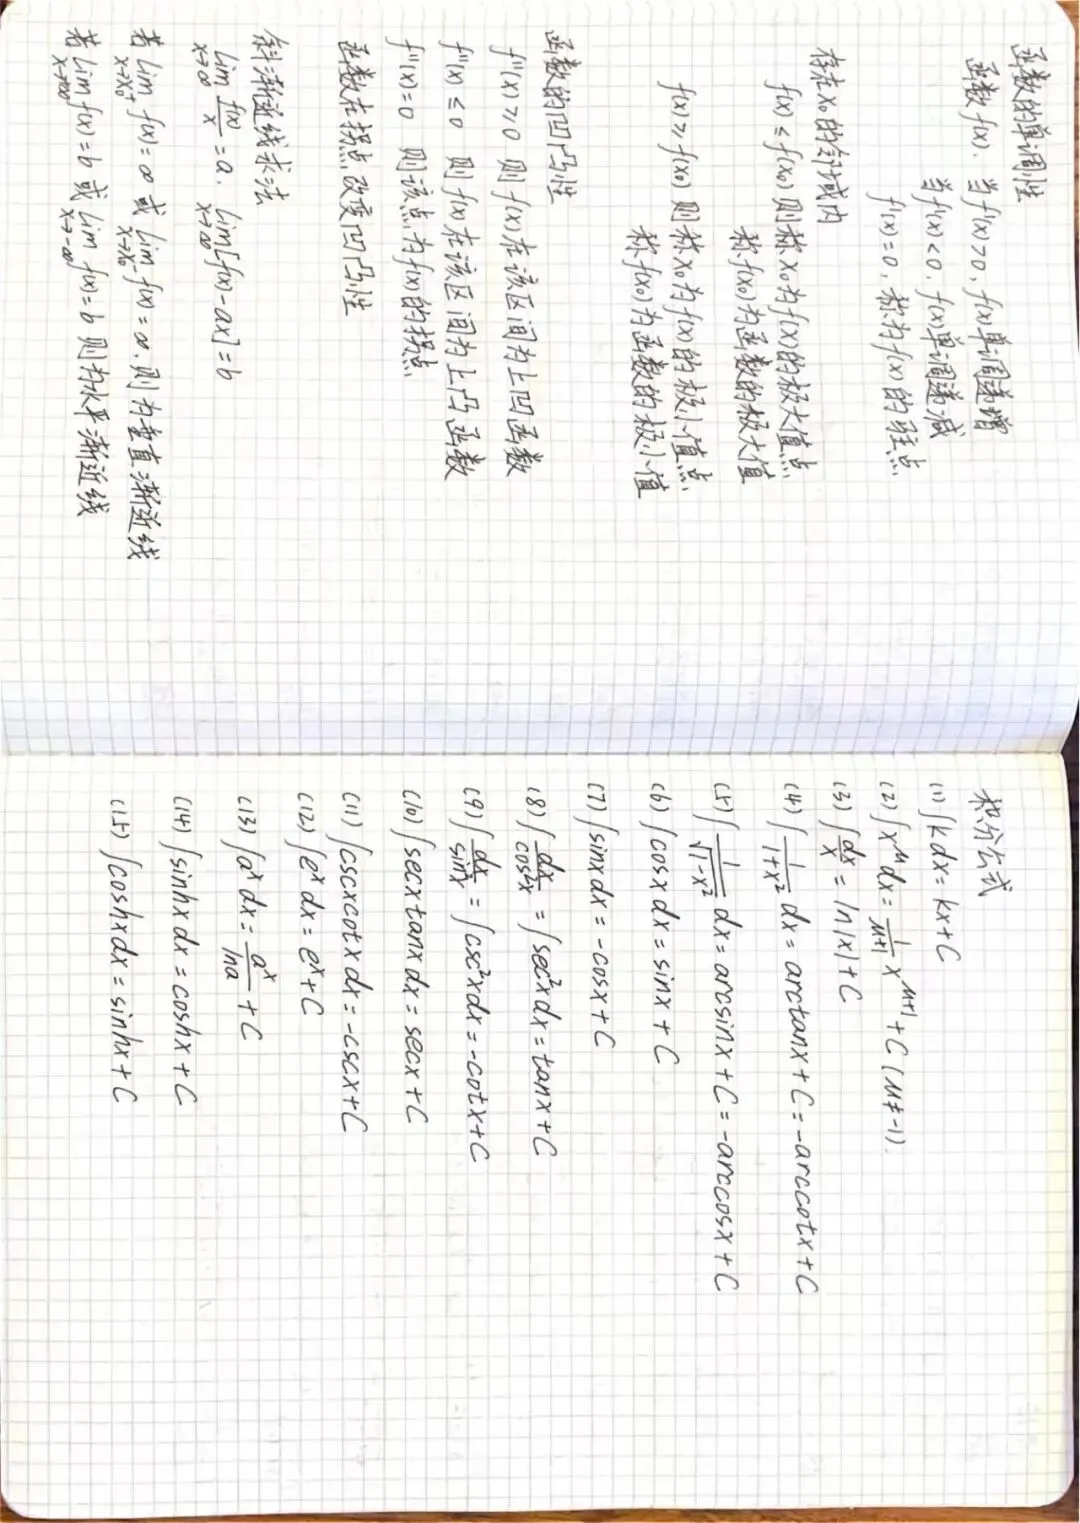 函数的单调性
函数f(x). 当f'(x)>0, f(x)单调递增
当f'(x)<0. f(x)单调递减
f'(x)=0, 称为f(x)的驻点
存在x₀的邻域内
f(x)≤f(x₀)则称x₀为f(x)的极大值点
称f(x₀)为函数的极大值
f(x)≥f(x₀)则称x₀为f(x)的极小值点
称f(x₀)为函数的极小值
函数的凹凸性
f''(x)≥0 则f(x)在该区间为上凹函数
f''(x)≤0 则f(x)在该区间为上凸函数
f''(x)=0 则该点为f(x)的拐点
函数在拐点改变凹凸性
斜渐近线求法
lim x→∞ f(x)/x = a. lim x→∞ [f(x)-ax]=b
若lim x→x₀⁺ f(x)=∞ 或 lim x→x₀⁻ f(x)=∞. 则为垂直渐近线
若lim x→+∞ f(x)=b 或 lim x→-∞ f(x)=b 则为水平渐近线
积分公式
(1) ∫kdx=kx+C
(2) ∫x^μ dx= 1/(μ+1) x^(μ+1) +C (μ≠-1).
(3) ∫dx/x = ln|x|+C
(4) ∫1/(1+x²) dx= arctanx+C=-arccotx+C
(5) ∫1/√(1-x²) dx= arcsinx+C=-arccosx+C
(6) ∫cosxdx=sinx+C
(7) ∫sinxdx=-cosx+C
(8) ∫dx/cos²x = ∫sec²xdx=tanx+C
(9) ∫dx/sin²x = ∫csc²xdx=-cotx+C
(10) ∫secxtanxdx=secx+C
(11) ∫cscxcotxdx=-cscx+C
(12) ∫e^x dx=e^x+C
(13) ∫a^x dx= a^x/lna +C
(14) ∫sinhxdx=coshx+C
(15) ∫coshxdx=sinhx+C